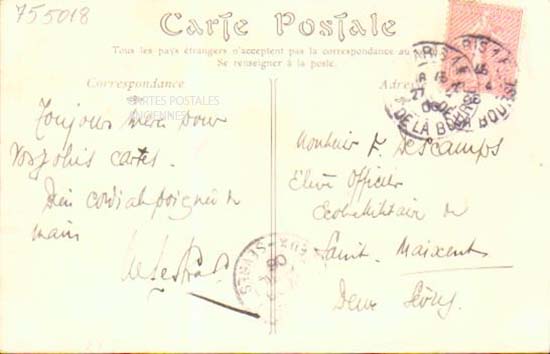 755018
Carte Postale
Tous les pays étrangers n'acceptent pas la correspondance au
Se renseigner à la poste.
Correspondance
CARTES POSTALES
ANCIENNES
Toujours merci pour
vos jolis cartes.
Bien cordiale poignée de
main
Adre
Monsieur F. Descamps
Elève Officier
Ecole Militaire de
Saint-Maixent
Deux Sèvres
PARIS
DE LA BOURSE
PARIS
BOURSE